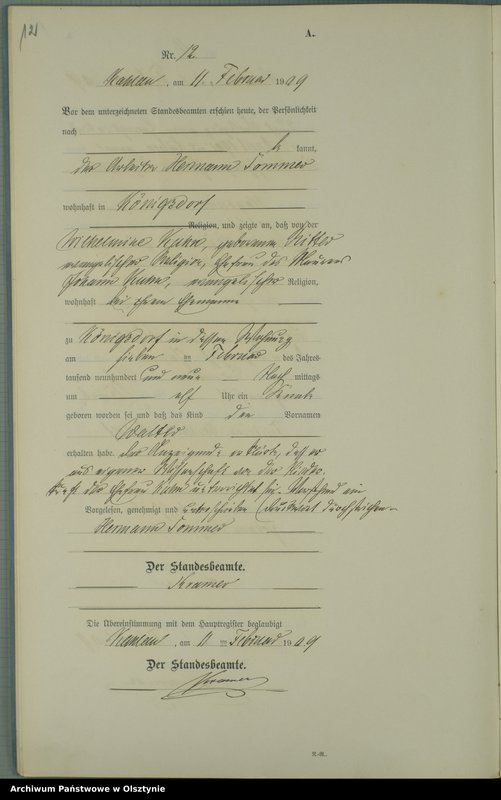 12
A.
Nr. 12.
am 11. Februar 1909
Vor dem unterzeichneten Standesbeamten erschien heute, der Persönlichkeit
nach
be kannt,
der Arbeiter Hermann Sommer
wohnhaft in Königsdorf
Religion, und zeigte an, daß von der
Wilhelmine Kuhn, geborenen Ritter
evangelischer Religion, Ehefrau des Maurers
Johann Kuhn, evangelischer Religion,
wohnhaft bei ihrem Ehemanne
zu Königsdorf in dessen Wohnung
am sieben ten Februar des Jahres
tausend neunhundert und neun Nach mittags
um elf Uhr ein Knabe
geboren worden sei und daß das Kind den Vornamen
Walter
erhalten habe. Der Anzeigende erklärte, daß er
aus eigener Wissenschaft von der Niederkunft
der Ehefrau Kuhn unterrichtet sei. Vorstehend ein
Vorgelesen, genehmigt und unterschrieben (Druckwort durchstrichen
Hermann Sommer
Der Standesbeamte.
Kramer
Die Übereinstimmung mit dem Hauptregister beglaubigt
am 11 ten Februar 1909
Der Standesbeamte.
Kramer
Archiwum Państwowe w Olsztynie